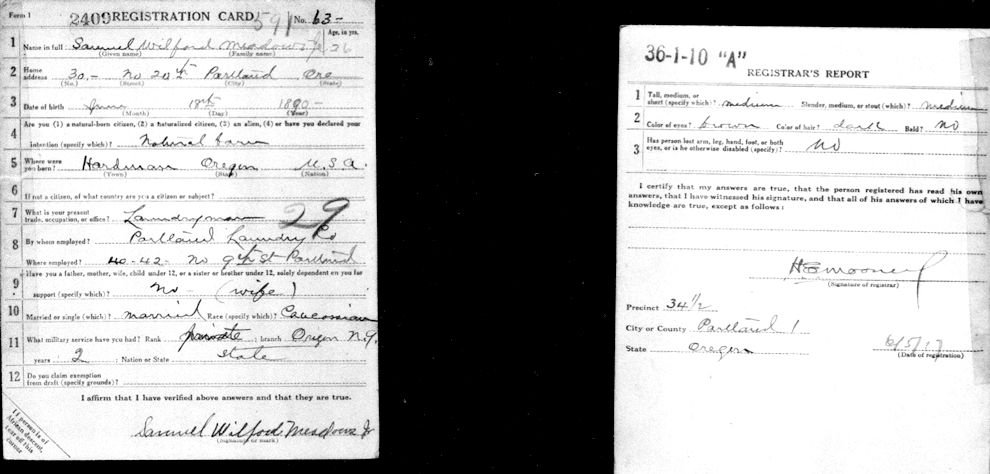 Form 1 2409 REGISTRATION CARD 591 No. 63-
1 Name in full Samuel Wilford Meadows Jr Age, in yrs. 26
(Given name) (Family name)
2 Home address 30.- No 20th Portland Ore
(No.) (Street) (City) (State)
3 Date of birth 18th 1890-
(Month) (Day) (Year)
4 Are you (1) a natural-born citizen, (2) a naturalized citizen, (3) an alien, (4) or have you declared your
intention (specify which)? Natural born
5 Where were you born? Hardman Oregon U.S.A.
(Town) (State) (Nation)
6 If not a citizen, of what country are you a citizen or subject?
7 What is your present trade, occupation, or office? Laundryman 29
8 By whom employed? Portland Laundry Co
Where employed? 40-42- No 9th St Portland
9 Have you a father, mother, wife, child under 12, or a sister or brother under 12, solely dependent on you for
support (specify which)? No - (wife)
10 Married or single (which)? married Race (specify which)? Caucassian
11 What military service have you had? Rank private ; branch Oregon N.G.
years 2 ; Nation or State State
12 Do you claim exemption from draft (specify grounds)?
I affirm that I have verified above answers and that they are true.
Samuel Wilford Meadows Jr
(Signature or mark)
If person is of
African descent,
tear off this
corner
36-1-10 "A"
REGISTRAR'S REPORT
1 Tall, medium, or short (specify which)? medium Slender, medium, or stout (which)? medium
2 Color of eyes? brown Color of hair? dark Bald? No
3 Has person lost arm, leg, hand, foot, or both
eyes, or is he otherwise disabled (specify)? No
I certify that my answers are true, that the person registered has read his own
answers, that I have witnessed his signature, and that all of his answers of which I have
knowledge are true, except as follows:
(Signature of registrar)
Precinct 34 1/2
City or County Portland
State Oregon 6/5/17
(Date of registration)